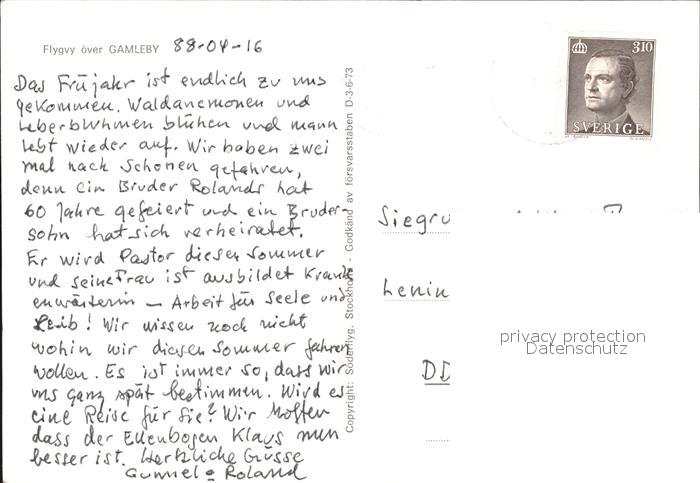 Flygvy över GAMLEBY 88-04-16
Das Früjahr ist endlich zu uns
gekommen. Waldanemonen und
Leberbluhmen blühen und mann
lebt wieder auf. Wir haben zwei
mal nach Schonen gefahren,
denn ein Bruder Rolands hat
60 Jahre gefeiert und ein Bruder-
sohn hat sich verheiratet.
Er wird Pastor diesen Sommer
und seine Frau ist ausbildet Krank
enwärterin – Arbeit für Seele und
Leib! Wir wissen noch nicht
wohin wir diesen Sommer fahren
wollen. Es ist immer so, dass wir
uns ganz spät bestimmen. Wird es
eine Reise für Sie? Wir hoffen
dass der Ellenbogen Klaus nun
besser ist. Herzliche Grüsse
Gunnel o Roland
Copyright: Söderflyg, Stockholm - Godkänd av försvarsstaben D-3-6-73
310
SVERIGE
Siegru
Lenin
DD
privacy protection
Datenschutz